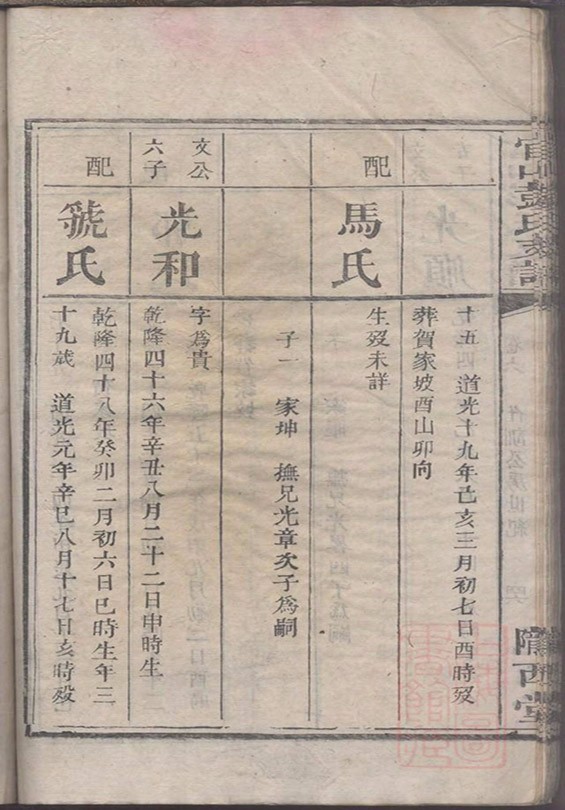 官山彭氏支譜
隴西堂
十五四 道光十九年己亥三月初七日酉時歿
葬賀家坡酉山卯向
配
馬氏
生歿未詳
子一 家坤 撫兄光章次子為嗣
文公
六子
光和
字為貴
乾隆四十六年辛丑八月二十二日申時生
配
虢氏
乾隆四十八年癸卯二月初六日巳時生年三
十九歲 道光元年辛巳八月十七日亥時歿